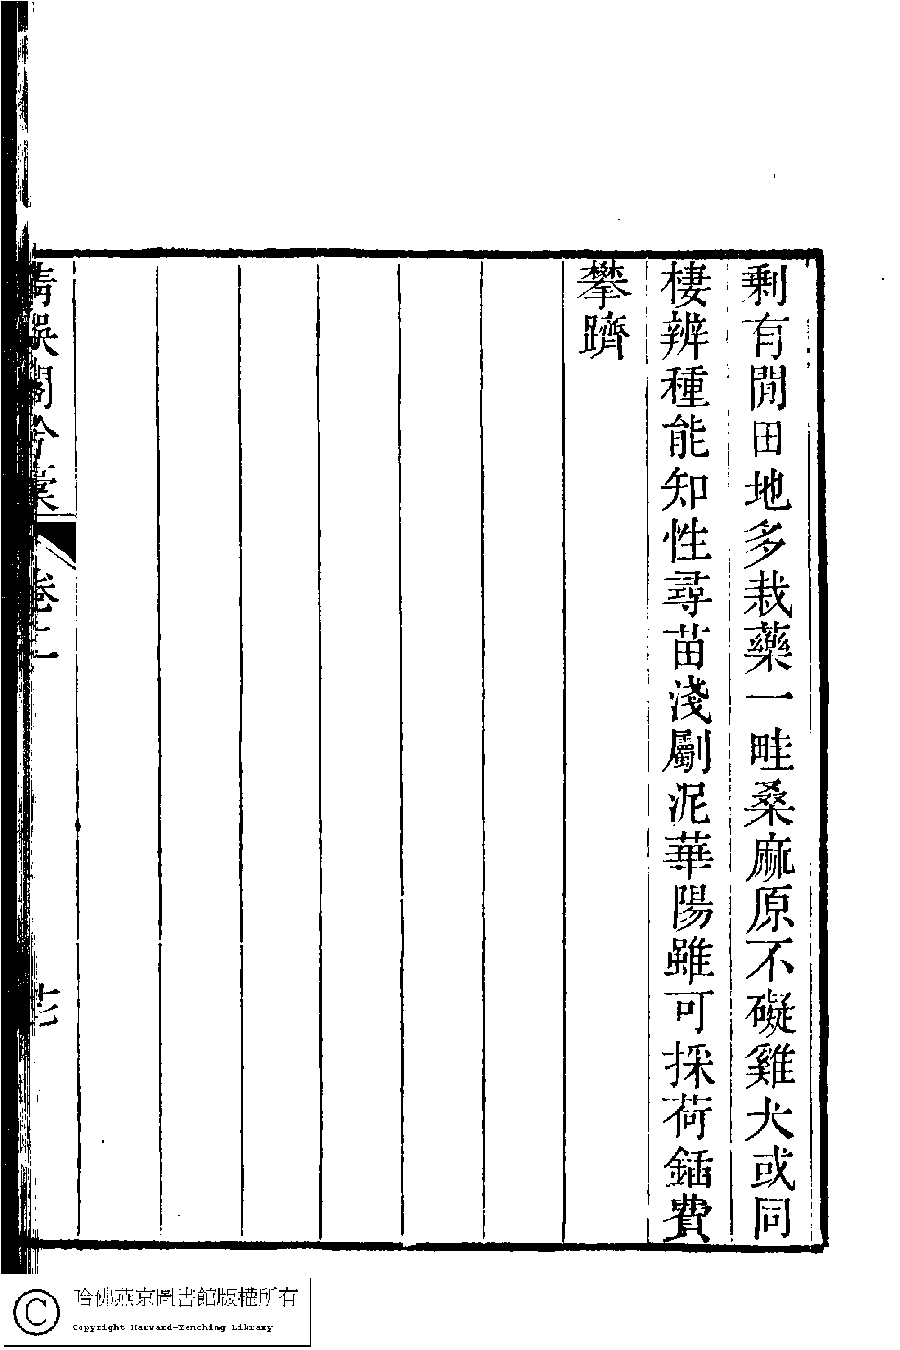 剩有閒田地多栽藥一畦桑麻原不礙雞犬或同
棲辨種能知性尋苗淺劚泥華陽雖可採荷鍤費
攀躋
卷二
哈佛燕京圖書館版權所有
Copyright Harvard-Yenching Library